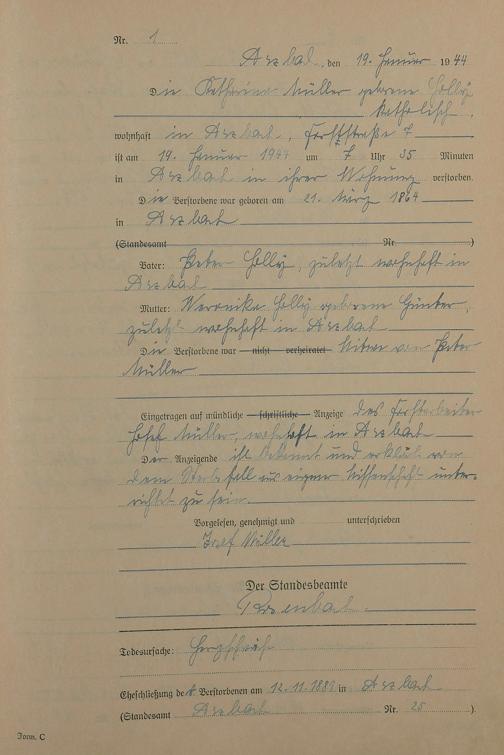 Nr. 1
Arzbach, den 19. Januar 1944
Die Katharina Müller geborene Holly
katholisch,
wohnhaft in Arzbach, Forststraße 7
ist am 19. Januar 1944 um 7 Uhr 35 Minuten
in Arzbach in ihrer Wohnung verstorben.
Die Verstorbene war geboren am 21. März 1864
in Arzbach
(Standesamt Nr. )
Vater: Peter Holly, zuletzt wohnhaft in
Arzbach
Mutter: Veronika Holly geborene Günter,
zuletzt wohnhaft in Arzbach
Die Verstorbene war nicht verheiratet Witwe von Peter
Müller
Eingetragen auf mündliche schriftliche Anzeige des Forstarbeiter
Josef Müller, wohnhaft in Arzbach
Der Anzeigende ist bekannt und erklärt von
dem Sterbefall aus eigener Wissenschaft unter-
richtet zu sein.
Vorgelesen, genehmigt und unterschrieben
Josef Müller
Der Standesbeamte
Todesursache:
Eheschließung der Verstorbenen am 12.11.1889 in Arzbach
(Standesamt Arzbach Nr. 25 )
Form. C